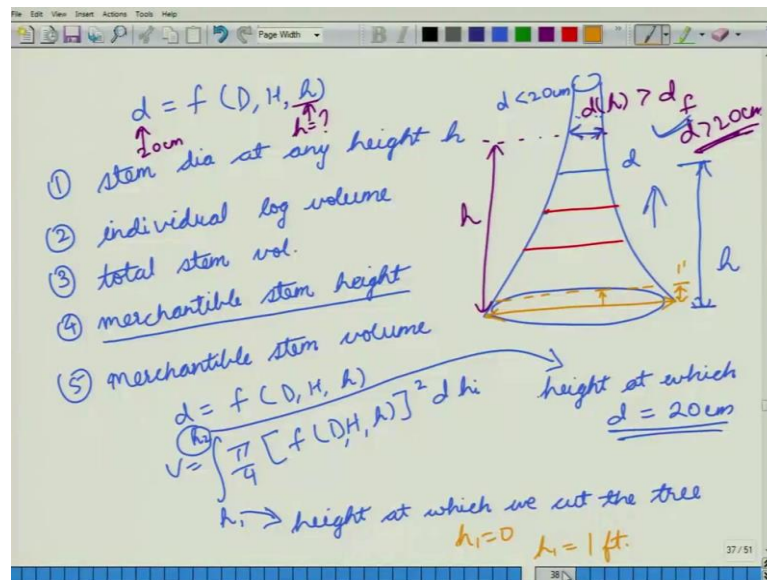 File Edit View Insert Actions Tools Help
Page Width
B I
d = f (D, H, h)
20cm
h=?
① stem dia at any height h
② individual log volume
③ total stem vol.
④ merchantible stem height
⑤ merchantible stem volume
d = f (D, H, h)
V = ∫ π/4 [f (D,H,h)]² d hi
h₂
h₁ → height at which we cut the tree
h₁=0 h₁ = 1 ft.
height at which
d = 20cm
d<20cm
d(h) > d f
d>20cm
d
h
h
1'
37 / 51
38